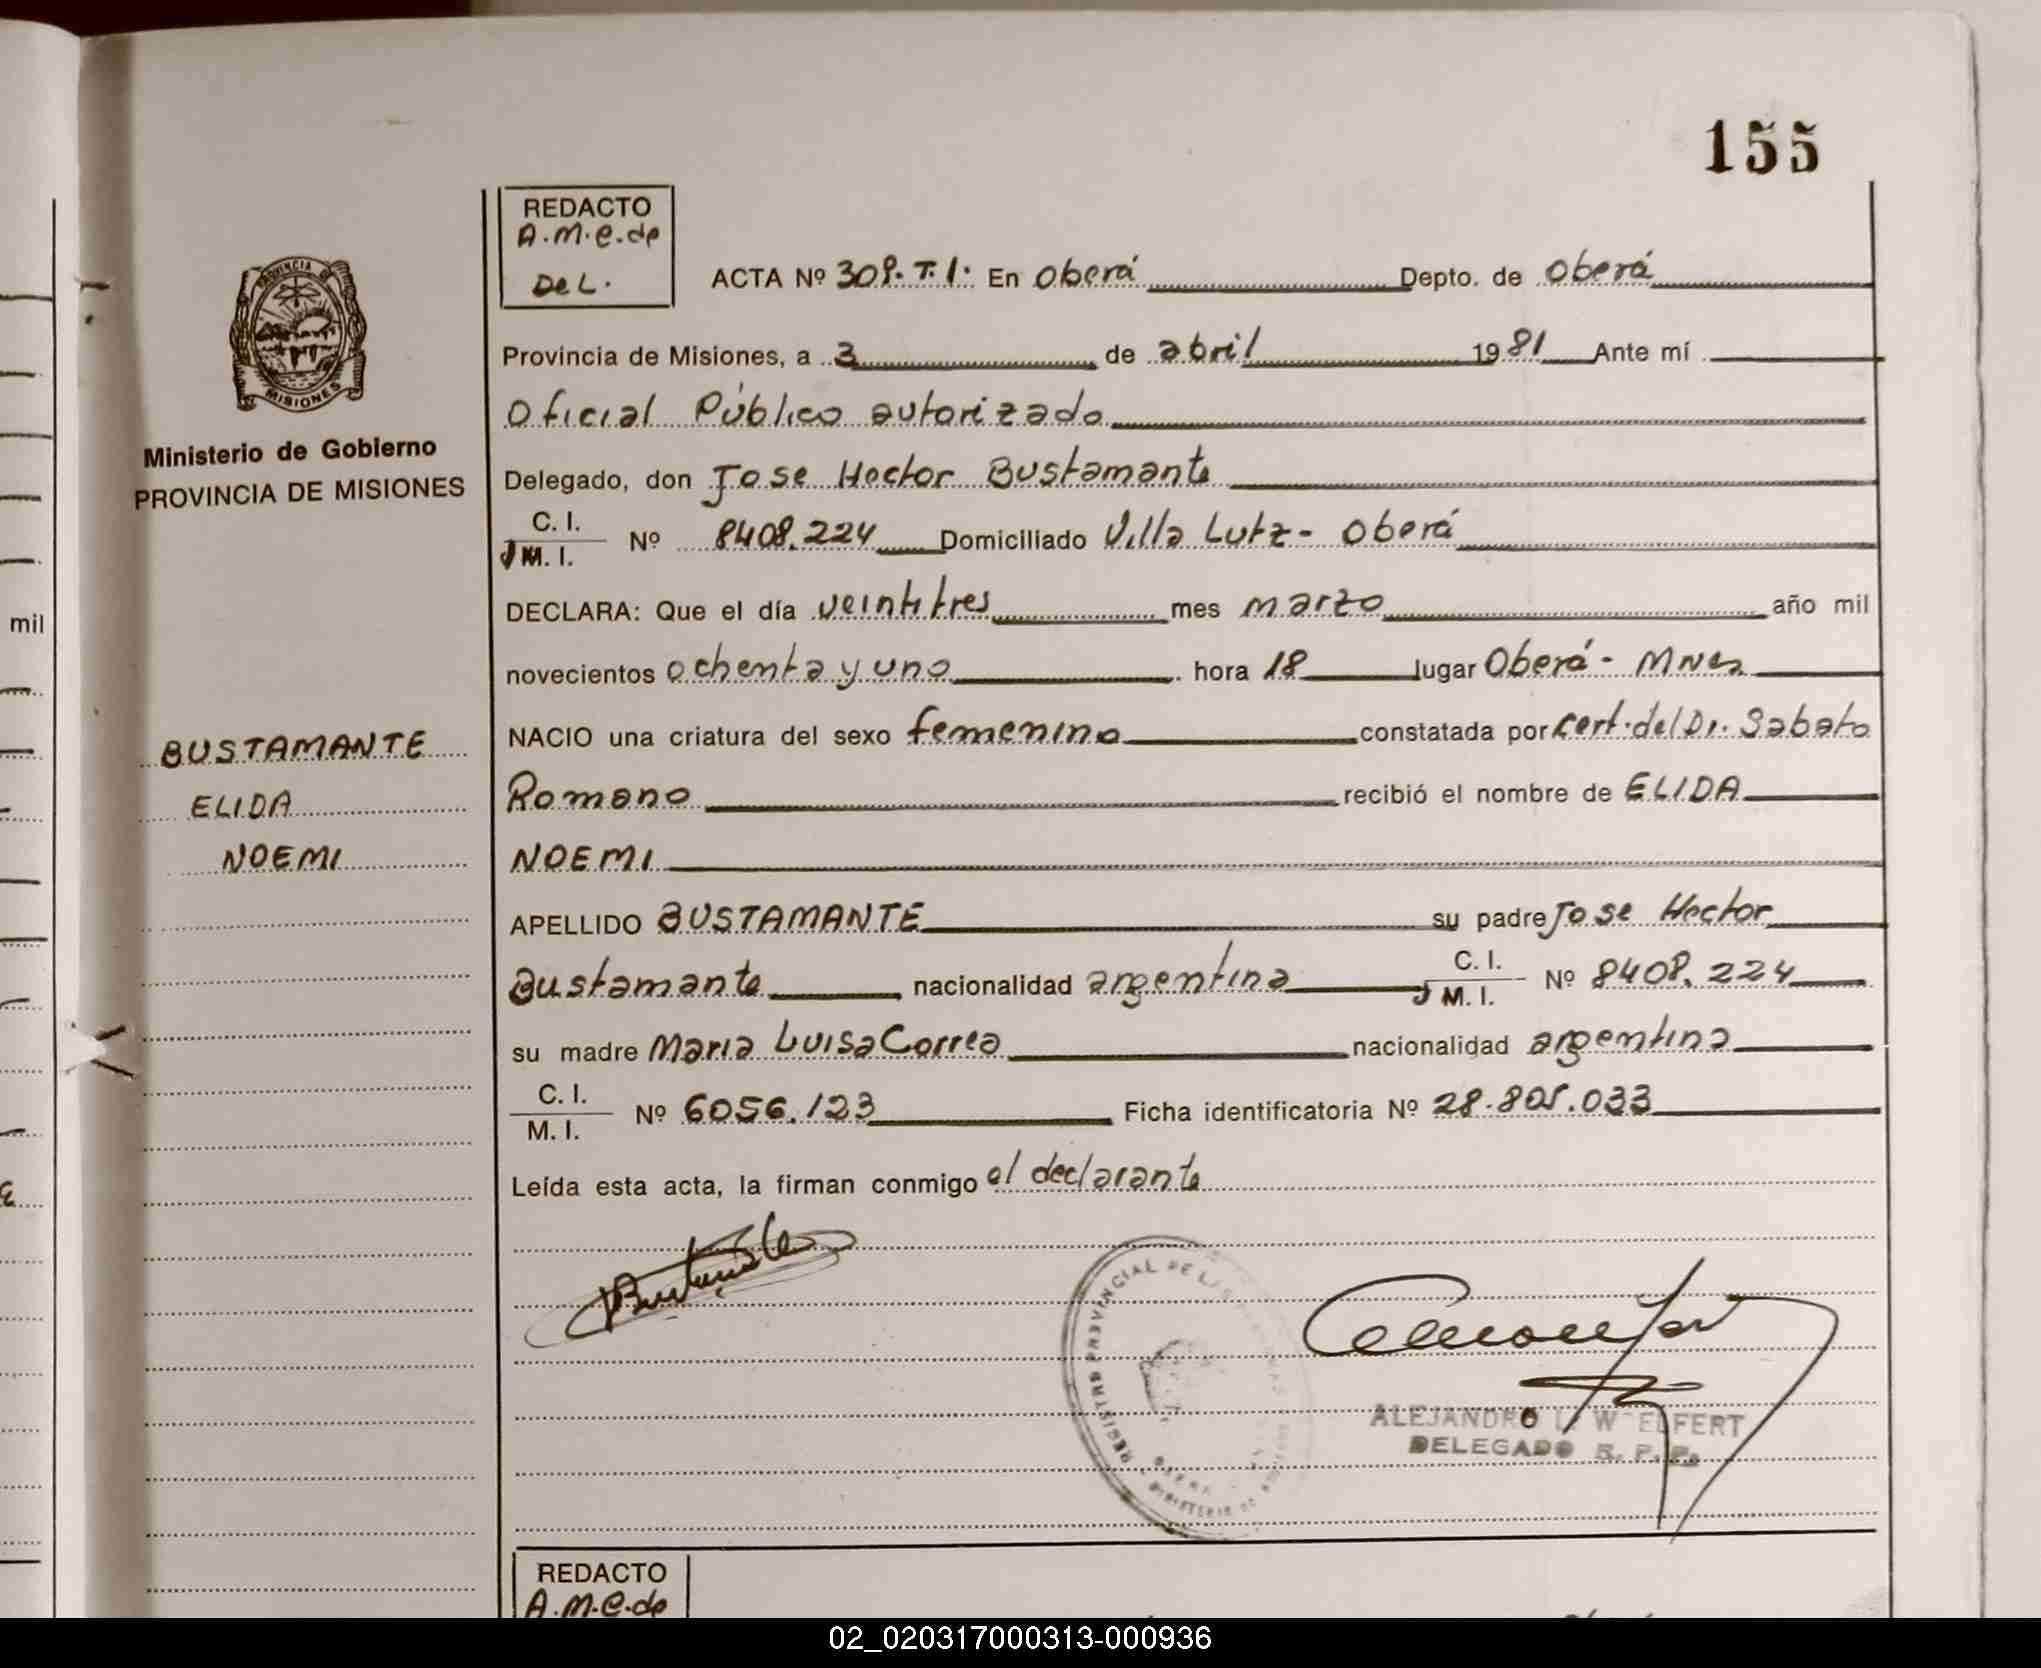 155
REDACTO
A.M.C.de
DEL.
ACTA Nº 309. T. 1. En Oberá Depto. de Oberá
Provincia de Misiones, a 3 de abril 1981 Ante mí
Oficial Público autorizado
Delegado, don Jose Hector Bustamante
C. I.
M. I. Nº 8408.224 Domiciliado Villa Lutz - Oberá
DECLARA: Que el día veintitres mes marzo año mil
novecientos ochenta y uno hora 18 lugar Oberá - Mnes
NACIO una criatura del sexo femenino constatada por Cert. del Dr. Sabato
Romano recibió el nombre de ELIDA
NOEMI
APELLIDO BUSTAMANTE su padre Jose Hector
Bustamante nacionalidad argentina C. I.
M. I. Nº 8408.224
su madre Maria Luisa Correa nacionalidad argentina
C. I.
M. I. Nº 6056.123 Ficha identificatoria Nº 28.805.033
Leída esta acta, la firman conmigo el declarante
Bustamante
REGISTRO PROVINCIAL DE LAS PERSONAS
ALEJANDRO
DELEGADO R. P. P.
PROVINCIA DE
MISIONES
Ministerio de Gobierno
PROVINCIA DE MISIONES
BUSTAMANTE
ELIDA
NOEMI
mil
REDACTO
A.M.C.de
02_020317000313-000936